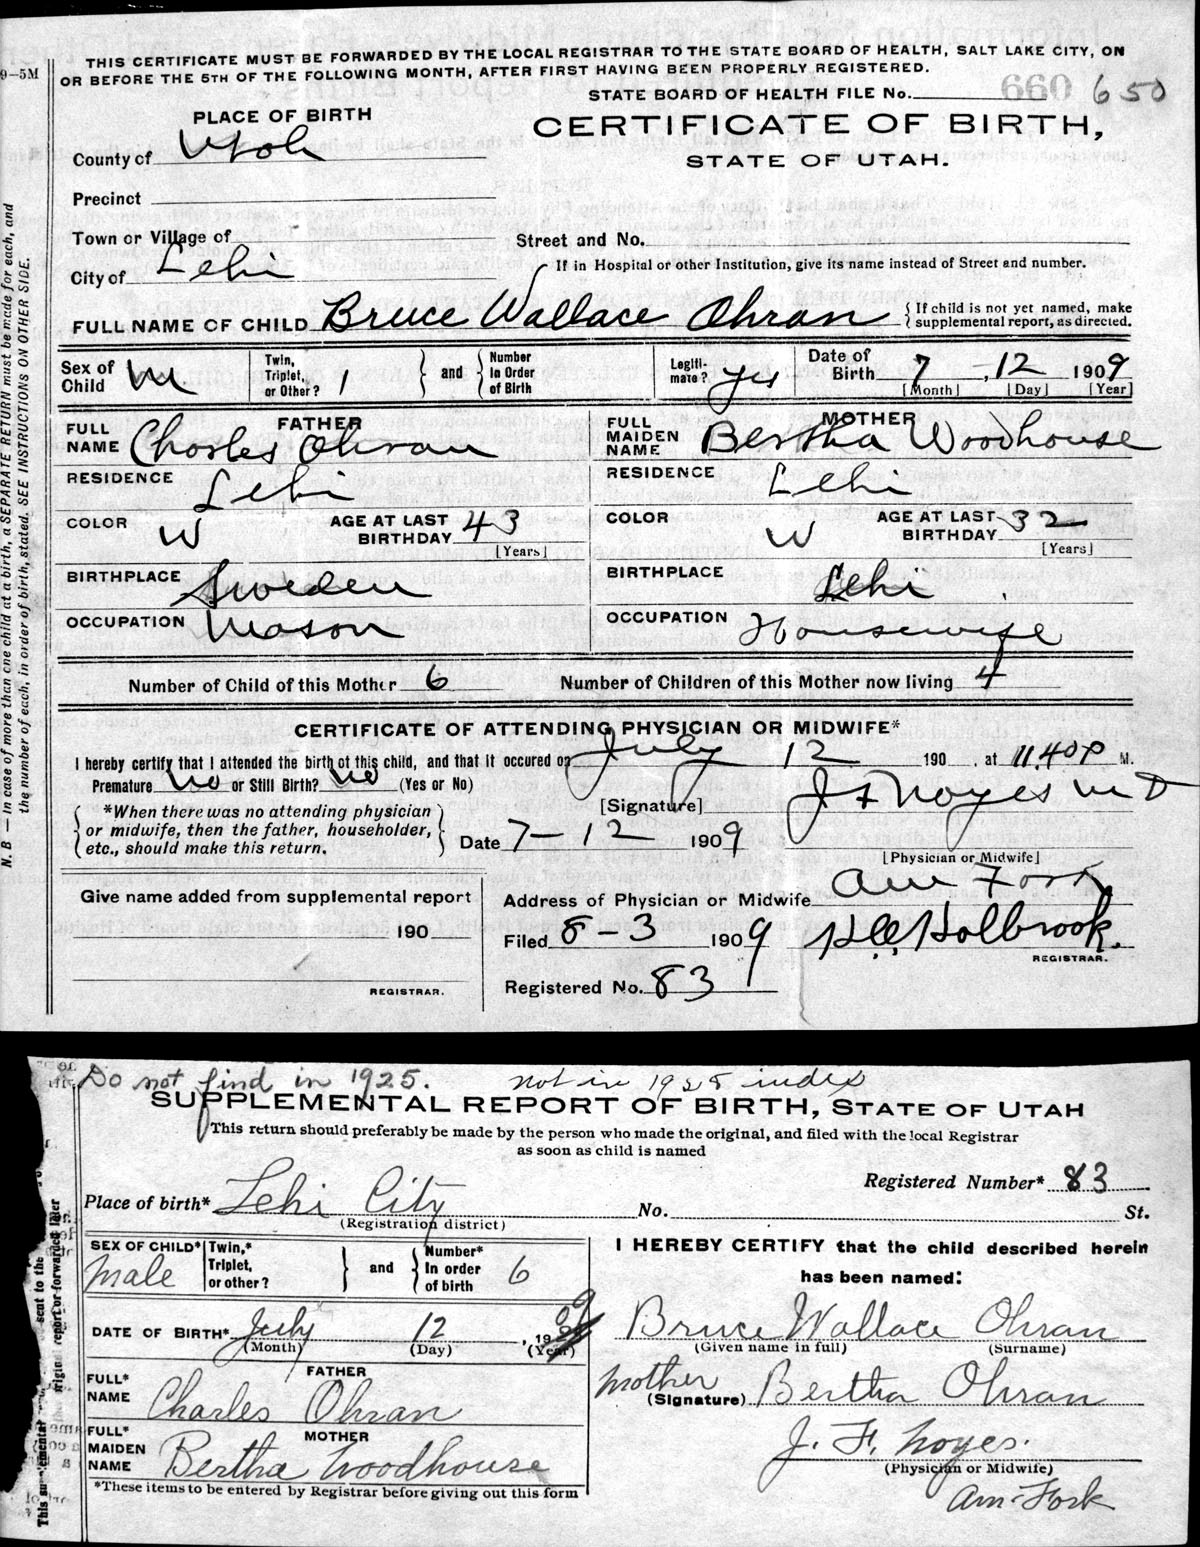 THIS CERTIFICATE MUST BE FORWARDED BY THE LOCAL REGISTRAR TO THE STATE BOARD OF HEALTH, SALT LAKE CITY, ON
OR BEFORE THE 5TH OF THE FOLLOWING MONTH, AFTER FIRST HAVING BEEN PROPERLY REGISTERED.
9-5M
STATE BOARD OF HEALTH FILE No. 660 650
PLACE OF BIRTH
CERTIFICATE OF BIRTH,
STATE OF UTAH.
County of Utah
Precinct
Town or Village of
Street and No.
City of Lehi
If in Hospital or other Institution, give its name instead of Street and number.
FULL NAME OF CHILD Bruce Wallace Ohran
If child is not yet named, make supplemental report, as directed.
Sex of Child M
Twin, Triplet, or Other? 1 and Number In Order of Birth
Legiti-mate? yes
Date of Birth 7, 12 1909
[Month] [Day] [Year]
FATHER
FULL NAME Charles Ohran
RESIDENCE Lehi
COLOR W
AGE AT LAST BIRTHDAY 43
[Years]
BIRTHPLACE Sweden
OCCUPATION Mason
MOTHER
FULL MAIDEN NAME Bertha Woodhouse
RESIDENCE Lehi
COLOR W
AGE AT LAST BIRTHDAY 32
[Years]
BIRTHPLACE Lehi
OCCUPATION Housewife
Number of Child of this Mother 6 Number of Children of this Mother now living 4
CERTIFICATE OF ATTENDING PHYSICIAN OR MIDWIFE*
I hereby certify that I attended the birth of this child, and that it occured on July 12 190 , at 11.40 P M.
Premature No or Still Birth? No (Yes or No)
*When there was no attending physician
or midwife, then the father, householder,
etc., should make this return.
[Signature] J F Noyes M D
Date 7-12 1909
[Physician or Midwife]
Give name added from supplemental report
190
REGISTRAR.
Address of Physician or Midwife Am Fork
Filed 8-3 1909 Holbrook.
REGISTRAR.
Registered No. 83
N. B — In case of more than one child at a birth, a SEPARATE RETURN must be made for each, and
the number of each, in order of birth, stated. SEE INSTRUCTIONS ON OTHER SIDE.
Do not find in 1925. not in 1925 index
SUPPLEMENTAL REPORT OF BIRTH, STATE OF UTAH
This return should preferably be made by the person who made the original, and filed with the local Registrar
as soon as child is named
Registered Number* 83
Place of birth* Lehi City No. St.
(Registration district)
SEX OF CHILD* Male
Twin,* Triplet, or other? and Number* In order of birth 6
DATE OF BIRTH* July 12, 19 09
(Month) (Day) (Year)
FATHER
FULL* NAME Charles Ohran
MOTHER
FULL* MAIDEN NAME Bertha Woodhouse
*These items to be entered by Registrar before giving out this form
I HEREBY CERTIFY that the child described herein
has been named:
Bruce Wallace Ohran
(Given name in full) (Surname)
Mother
(Signature) Bertha Ohran
J. F. Noyes.
(Physician or Midwife)
Am-Fork